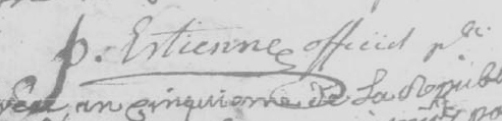 p. Estienne officiel plc
an cinquieme de La Republ